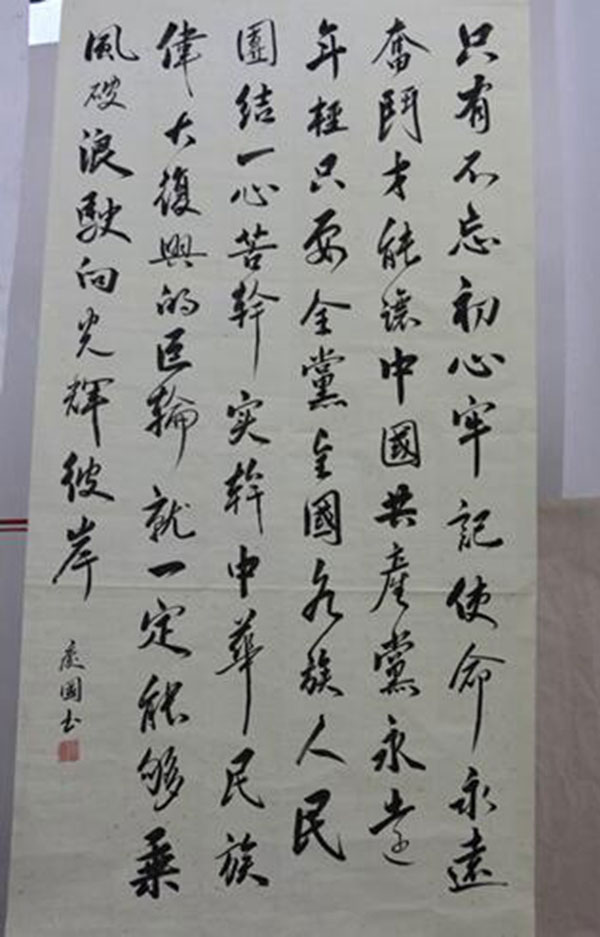 只有不忘初心牢記使命永遠
奮鬥才能讓中國共產黨永遠
年輕只要全黨全國各族人民
團結一心苦幹實幹中華民族
偉大復興的巨輪就一定能够乘
風破浪駛向光輝彼岸
慶國书